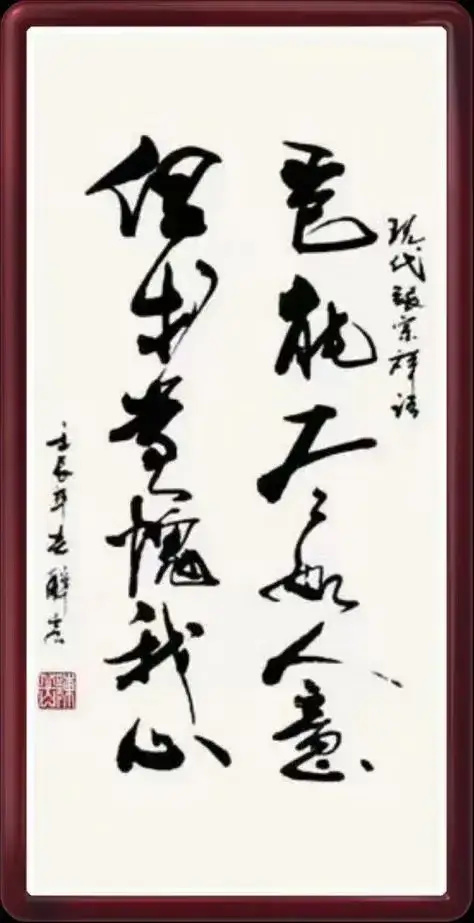 现代張宗祥语
岂能尽如人意
但求無愧我心
壬辰年